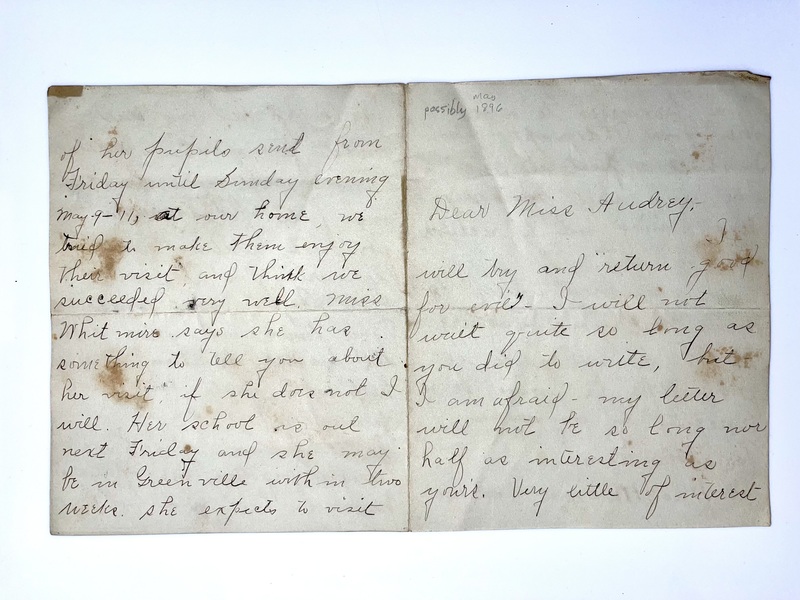 of her pupils sent from
Friday until Sunday evening
May 9-11, at our home, we
tried to make them enjoy
their visit and think we
succeeded very well. Miss
Whitmire says she has
something to tell you about
her visit, if she does not I
will. Her school is out
next Friday and she may
be in Greenville with in two
weeks. She expects to visit
possibly May 1896
Dear Miss Audrey,-
I
will try and "return good
for evil" - I will not
wait quite so long as
you did to write, but
I am afraid - my letter
will not be so long nor
half as interesting as
yours. Very little of interest